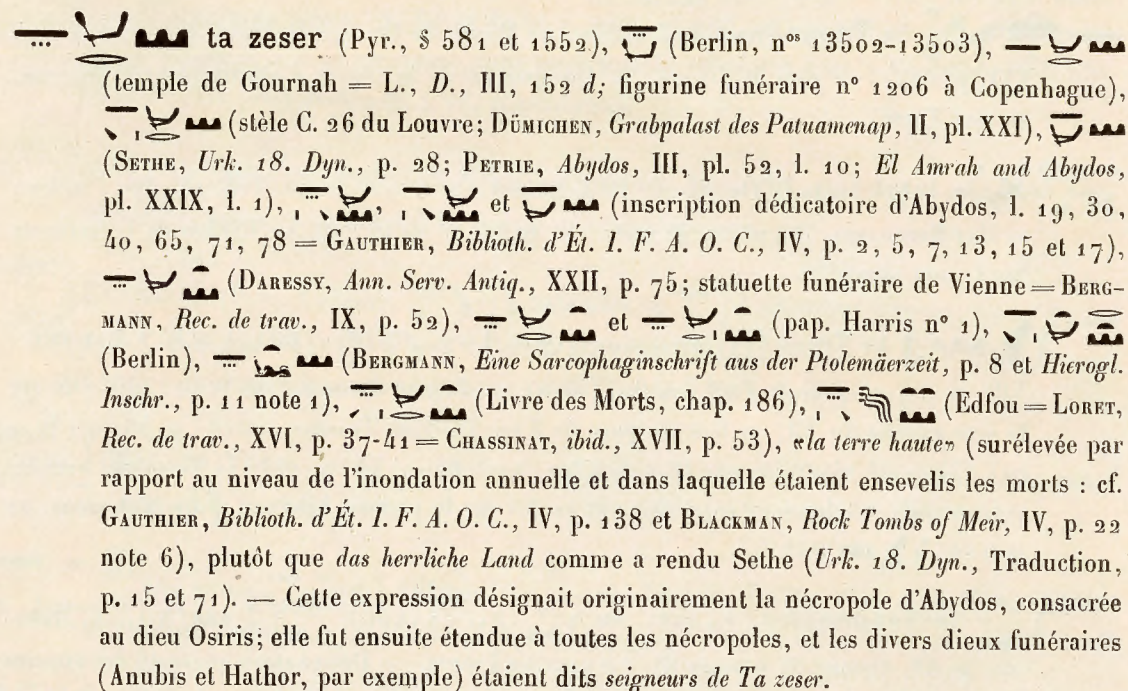 ta zeser (Pyr., § 581 et 1552), (Berlin, nos 13502-13503),
(temple de Gournah = L., D., III, 152 d; figurine funéraire n° 1206 à Copenhague),
(stèle C. 26 du Louvre; DÜMICHEN, Grabpalast des Patuamenap, II, pl. XXI),
(SETHE, Urk. 18. Dyn., p. 28; PETRIE, Abydos, III, pl. 52, l. 10; El Amrah and Abydos,
pl. XXIX, l. 1), , et (inscription dédicatoire d'Abydos, l. 19, 30,
40, 65, 71, 78 = GAUTHIER, Biblioth. d'Ét. I. F. A. O. C., IV, p. 2, 5, 7, 13, 15 et 17),
(DARESSY, Ann. Serv. Antiq., XXII, p. 75; statuette funéraire de Vienne = BERG-
MANN, Rec. de trav., IX, p. 52), et (pap. Harris n° 1),
(Berlin), (BERGMANN, Eine Sarcophaginschrift aus der Ptolemäerzeit, p. 8 et Hierogl.
Inschr., p. 11 note 1), (Livre des Morts, chap. 186), (Edfou = LORET,
Rec. de trav., XVI, p. 37-41 = CHASSINAT, ibid., XVII, p. 53), «la terre haute» (surélevée par
rapport au niveau de l'inondation annuelle et dans laquelle étaient ensevelis les morts : cf.
GAUTHIER, Biblioth. d'Ét. I. F. A. O. C., IV, p. 138 et BLACKMAN, Rock Tombs of Meir, IV, p. 22
note 6), plutôt que das herrliche Land comme a rendu Sethe (Urk. 18. Dyn., Traduction,
p. 15 et 71). — Cette expression désignait originairement la nécropole d'Abydos, consacrée
au dieu Osiris; elle fut ensuite étendue à toutes les nécropoles, et les divers dieux funéraires
(Anubis et Hathor, par exemple) étaient dits seigneurs de Ta zeser.